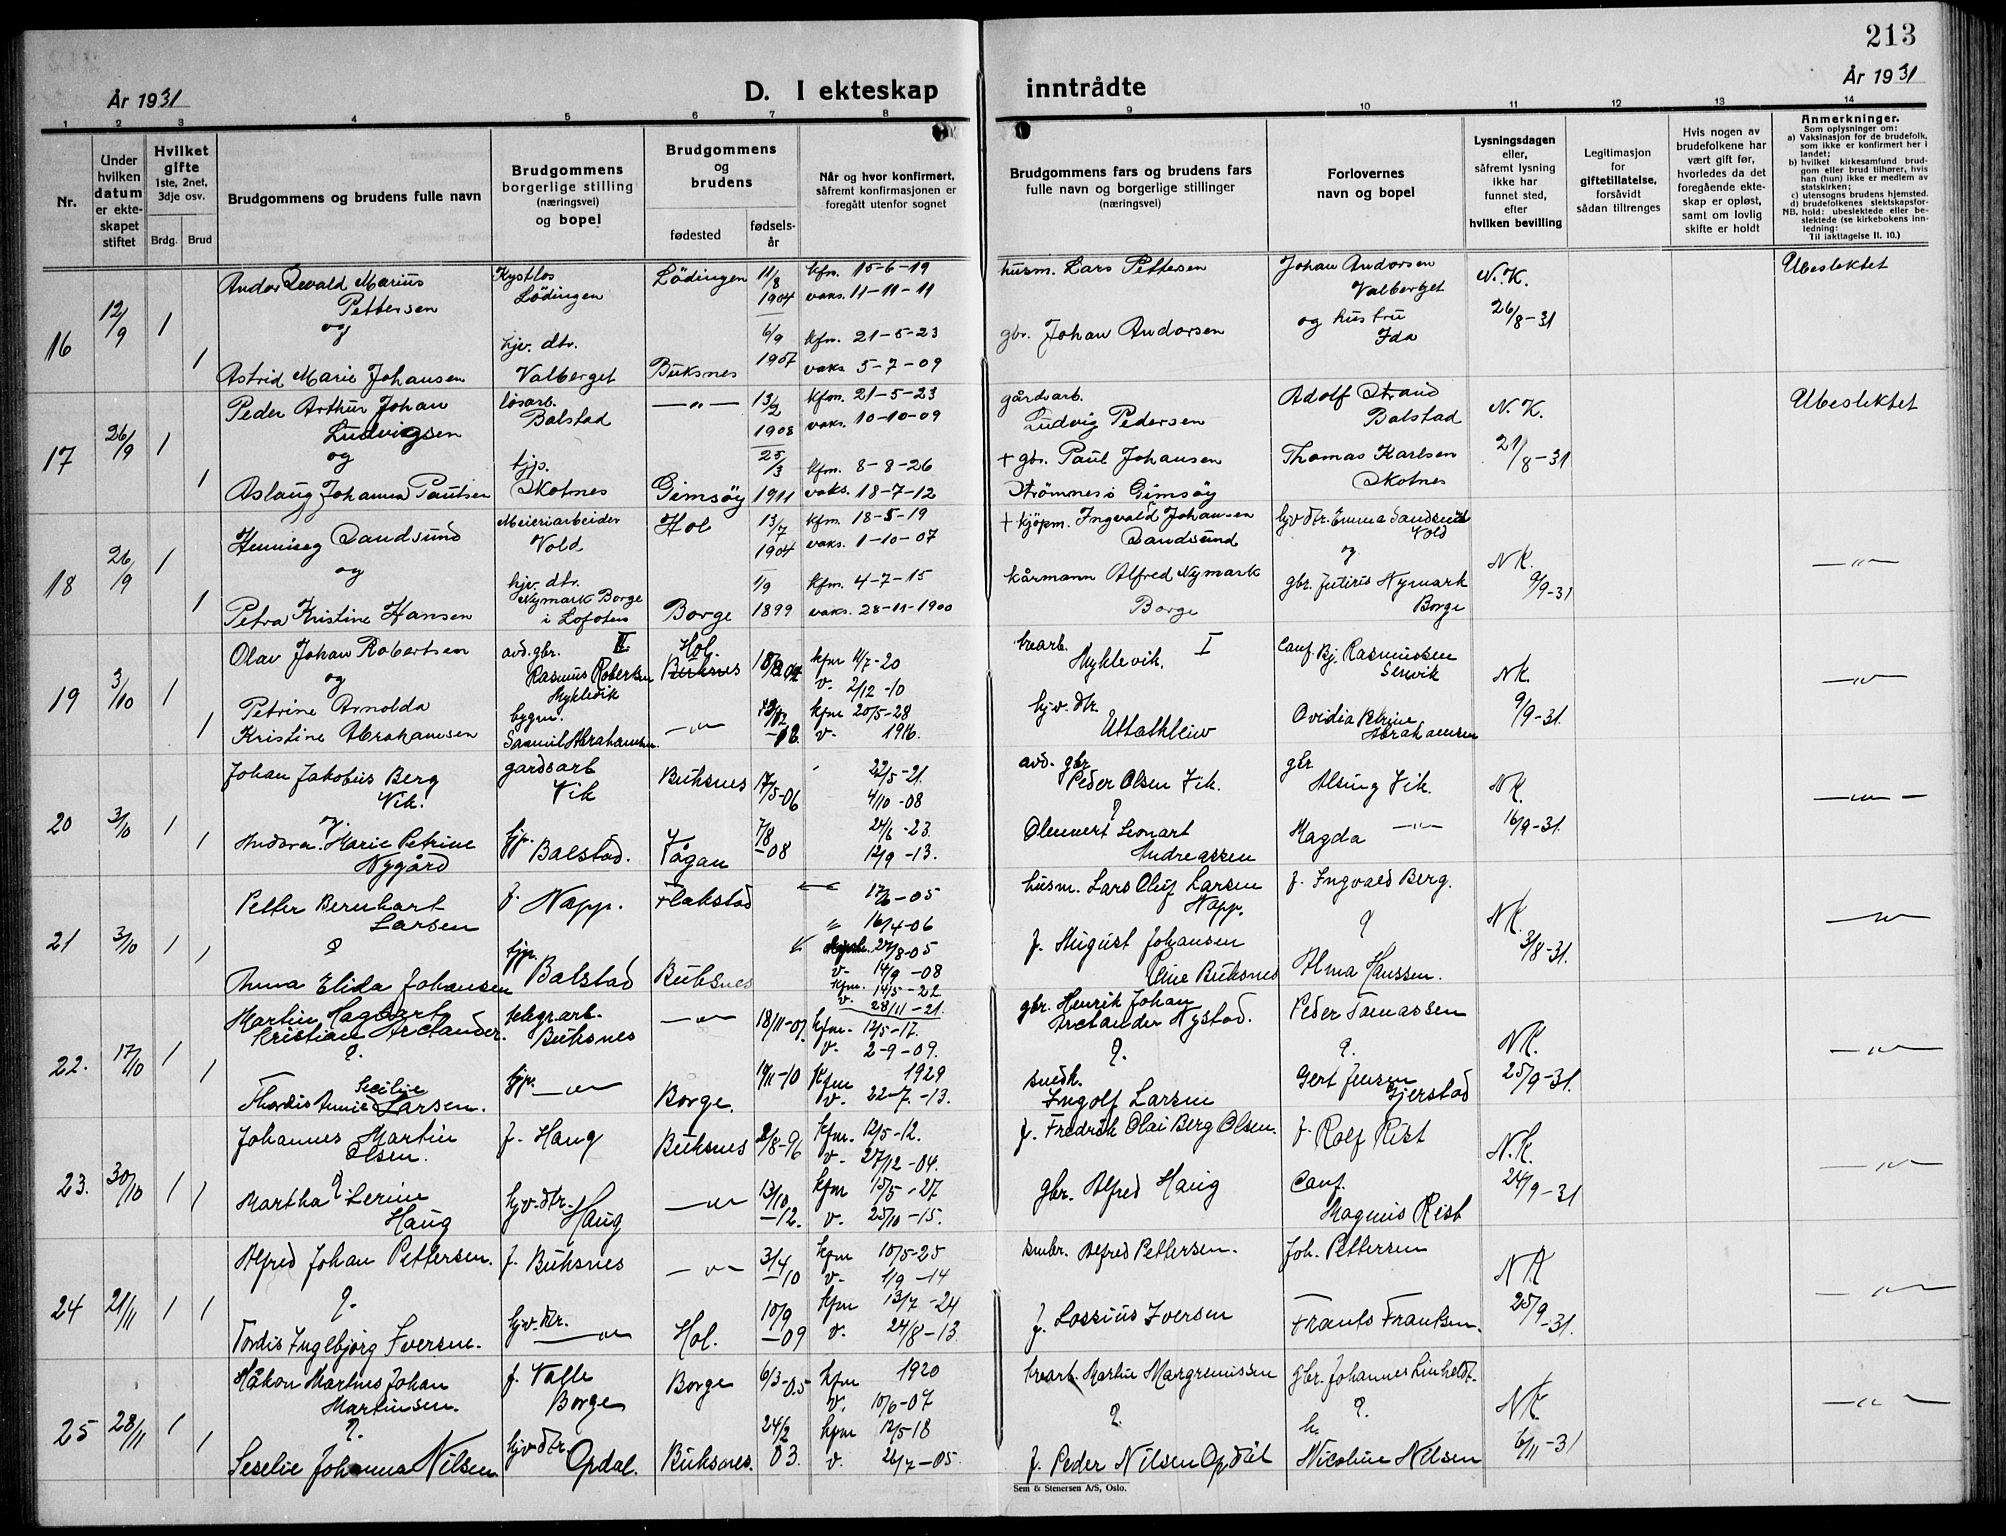 213
År 1931
D. I ekteskap inntrådte
År 1931
1 2 3 4 5 6 7 8 9 10 11 12 13 14
Nr.
Under hvilken datum er ekteskapet stiftet
Hvilket gifte
1ste, 2net, 3dje osv.
Brdg. Brud
Brudgommens og brudens fulle navn
Brudgommens borgerlige stilling (næringsvei) og bopel
Brudgommens og brudens
fødested
fødselsår
Når og hvor konfirmert, såfremt konfirmasjonen er foregått utenfor sognet
Brudgommens fars og brudens fars fulle navn og borgerlige stillinger (næringsvei)
Forlovernes navn og bopel
Lysningsdagen eller, såfremt lysning ikke har funnet sted, efter hvilken bevilling
Legitimasjon for giftetillatelse, forsåvidt sådan tiltrenges
Hvis nogen av brudefolkene har vært gift før, hvorledes da det foregående ekteskap er opløst, samt om lovlig skifte er holdt
Anmerkninger.
Som oplysninger om:
a) Vaksinasjon for de brudefolk, som ikke er konfirmert her i landet;
b) hvilket kirkesamfund brudgom eller brud tilhører, hvis han (hun) ikke er medlem av statskirken;
c) utensogns brudens hjemsted.
d) brudefolkenes slektskapsforhold: ubeslektede eller beslektede (se kirkebokens innledning:
NB.
Til iakttagelse II. 10.)
16 12/9 1 Andor Levald Marius Pettersen Kystlos Lödingen Lödingen 11/8 1904 kfm. 15-6-19 vaks. 11-11-11 husm. Lars Pettersen Johan Andorsen Valberget N.K. 26/8-31 Ubeslektet
og
1 Astrid Marie Johansen hjv. dtr. Valberget Buksnes 6/9 1907 kfm. 21-5-23 vaks 5-7-09 gbr. Johan Andorsen og hustru Ida
17 26/9 1 Peder Arthur Johan Ludvigsen løsarb. Balstad —"— 13/2 1908 kfm. 21-5-23 vaks. 10-10-09 gårdsarb. Ludvig Pedersen Adolf Strand Balstad N.K. 21/8-31 Ubeslektet
og
1 Aslaug Johanna Paulsen tjp. Skotnes Gimsöy 25/3 1911 kfm. 8-8-26 vaks. 18-7-12 + gbr. Paul Johansen Strömnes i Gimsöy Thomas Karlsen Skotnes
18 26/9 1 Henning Sandsund Meieriarbeider Vold Hol 13/7 1904 kfm. 18-5-19 vaks. 1-10-07 + kjöpm. Ingevald Johansen Sandsund hjv dtr. Emma Sandsund Vold NK. 9/9-31 —"—
og
1 Petra Kristine Hansen hjv. dtr. Nymark Borge i Lofoten Borge 1/9 1899 kfm. 4-7-15 vaks. 28-11-1900 kårmann Alfred Nymark Borge og gbr. Julius Nymark Borge
19 3/10 1 Olav Johan Robertsen avd. gbr. II Rasmus Robertsen Myklevik Hol. Buksnes kfm 11/7-20 v. 2/12-10 hvarb. Myklevik. I Rasmussen NK. 9/9-31. —"—
og
1 Petrine Arnolda Kristine Abrahamsen Samuel Abrahamsen —"— kfm 20/5-28 v. 1916. hjv. dtr. Ovidia Petrine Abrahamsen
20 3/10 1 Johan Jakobus Berg Vik. gardsarb Vik Buksnes 17/5-06 22/5-21. 4/10-08 avd. gbr Peder Olsen Vik. gbr Vik. NK. 16/9-31. —"—
og.
1 Andora Marie Petrine Nygård tjp. Balstad. Vågan 7/8-08 24/6-23. 12/9-13. Leonart Andreassen Magda —"—
21 3/10 1 Petter Bernhart Larsen f. Napp. Flakstad 17/6-05 16/4-06 husm. Lars Oluf Larsen Napp. f. Ingvald Berg. NK. 3/8-31. —"—
1 Anna Elida Johansen tjp. Balstad Buksnes 27/8-05 v- 14/9-08 kfm. 14/5-22 v. 28/11-21. f. August Johansen Buksnes Alma Hanssen.
22. 17/10 1 Martin Hagbart Kristian Arctander. telegrarb. Buksnes —"— 18/11-07. kfm. 12/5-17. v. 2-9-09. gbr. Henrik Johan Arctander Nystad. Peder Tomassen NK. 25/9-31. —"—
1 Thordis Annie Secilie Larsen. tjp. —"— Borge. 19/11-10 Kfm 1929 v. 22-7-13. snedk. Ingolf Larsen Gert Jensen Gjerstad
23. 30/10 1 Johannes Martin Olsen. f. Haug Buksnes 2/8-96 kfm. 12/5-12. v- 27/12-04. f. Fredrik Olai Berg Olsen. f Rolf Rist N.K. 24/9-31 —"—
1 Martha Serine Haug hjv. dtr. Haug —"— 13/10-12. kfm 15/5-27 v. 25/10-15. gbr. Alfred Haug Magnus Rist
24 21/11 1 Alfred Johan Pettersen. f. Buksnes —"— 3/4-10 kfm 10/5-25 v- 1/9-14 smbr. Alfred Pettersen. Joh. Pettersen NK 25/9-31. —"—
1 Tordis Ingebjörg Iversen. hjv. dtr. —"— Hol. 10/9-09 kfm 13/7-24 v. 24/8-13. f. Lossius Iversen Frants Frantsen.
25 28/11 1 Håkon Martines Johan Martinsen. f. Valle Borge Borge 6/3-05 kfm 1920 v. 10/6-07 hvarb. Martin gbr. Johannes NK. 6/11-31 —"—
1 Seselie Johanna Nilsen. hjv. dtr. Opdal. Buksnes. 24/2 03. kfm 12/5-18 v. 26/7-05. f. Peder Nilsen Opdal Nicoline Nilsen
Sem & Stenersen A/S, Oslo.